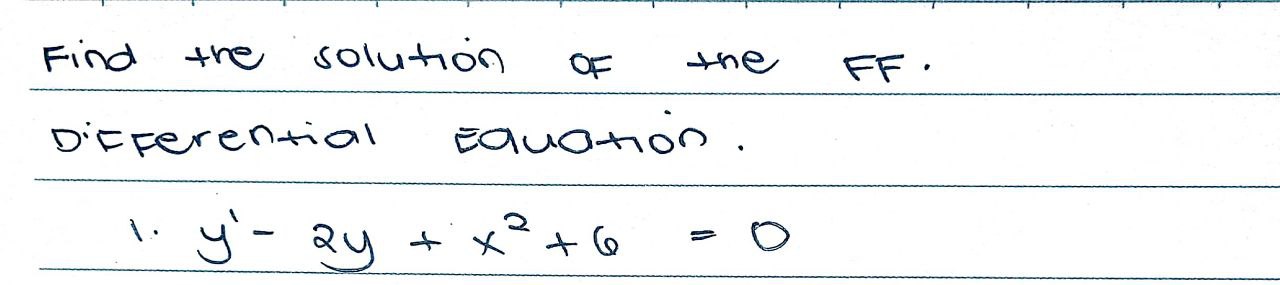 Find the solution of the FF.
Differential Equation.
1. y' - 2y + x² + 6 = 0